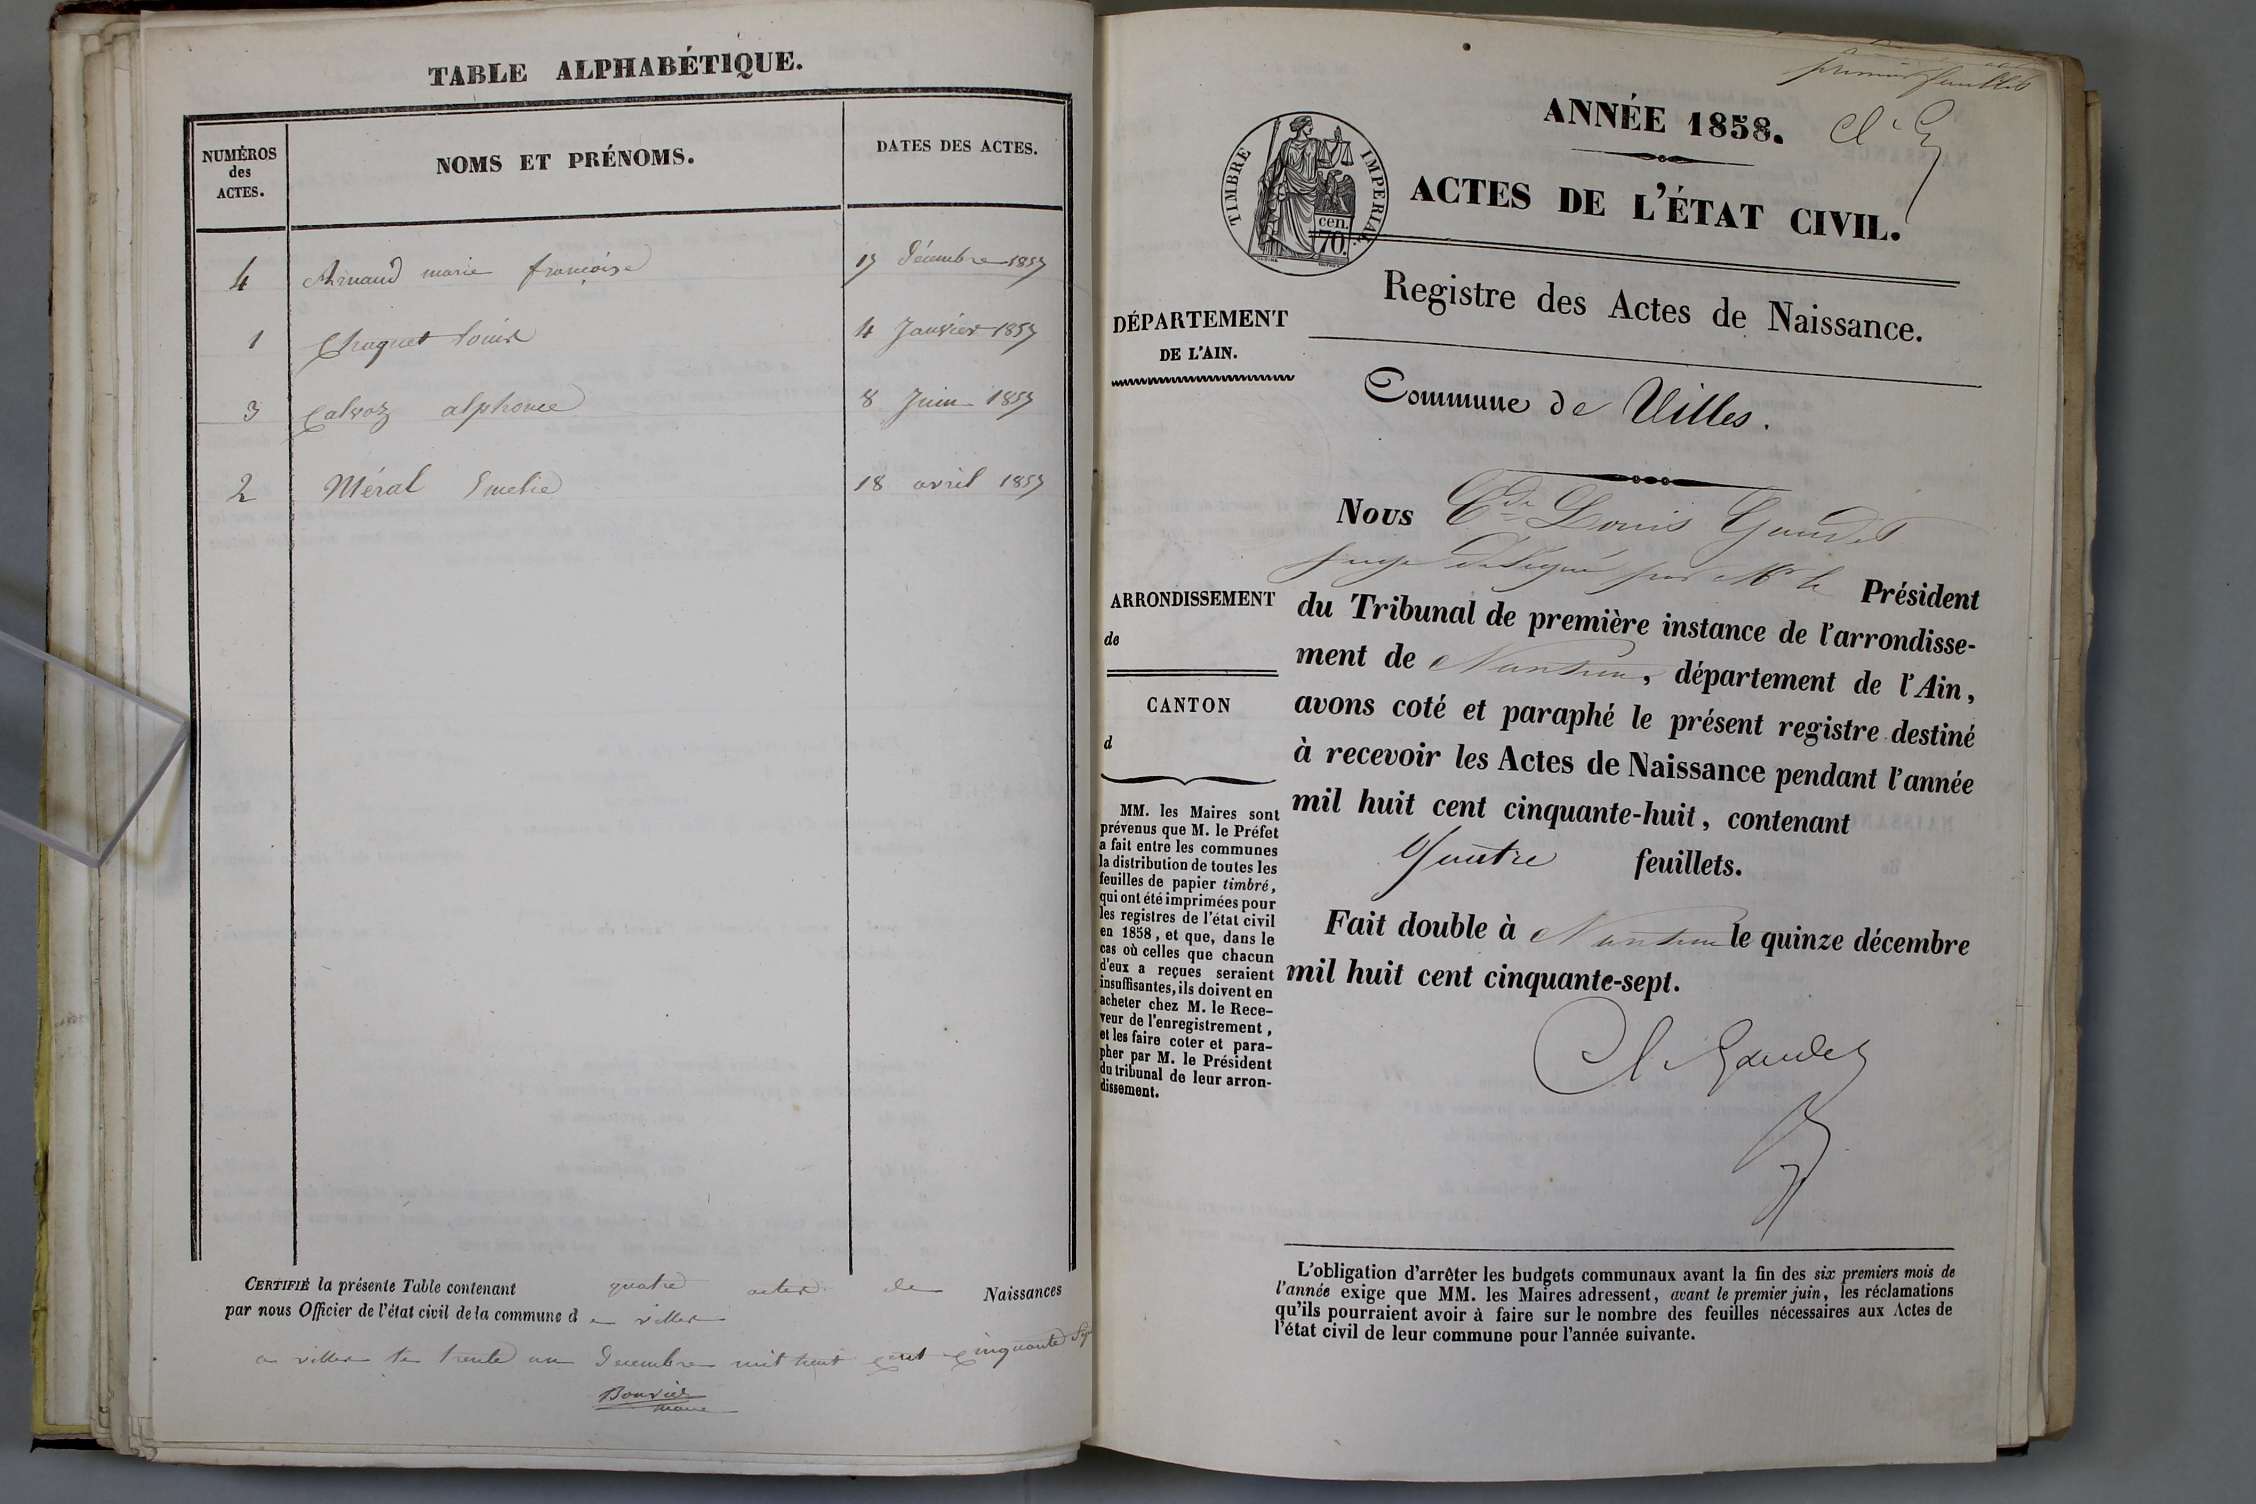 TABLE ALPHABÉTIQUE.
NUMÉROS des ACTES.
NOMS ET PRÉNOMS.
DATES DES ACTES.
4 Arnaud marie françoise 17 Décembre 1857
1 Chaquet Louise 4 Janvier 1857
3 Calvoz alphonse 8 Juin 1857
2 Méral Emelie 18 avril 1857
CERTIFIÉ la présente Table contenant quatre actes de Naissances
par nous Officier de l'état civil de la commune de villes
a villes le trente un Decembre mil huit cent cinquante Sept
Bouvier
maire
premier feuillet
ANNÉE 1858.
TIMBRE IMPERIAL
70 cen.
ACTES DE L'ÉTAT CIVIL.
Registre des Actes de Naissance.
DÉPARTEMENT
DE L'AIN.
Commune de Villes.
Nous Cde Louis Gaudet
juge délégué par Mr le Président
ARRONDISSEMENT
de
du Tribunal de première instance de l'arrondisse-
ment de Nantua, département de l'Ain,
CANTON
d
avons coté et paraphé le présent registre destiné
à recevoir les Actes de Naissance pendant l'année
mil huit cent cinquante-huit, contenant
Quatre feuillets.
Fait double à Nantua le quinze décembre
mil huit cent cinquante-sept.
Cl Gaudet
MM. les Maires sont
prévenus que M. le Préfet
a fait entre les communes
la distribution de toutes les
feuilles de papier timbré,
qui ont été imprimées pour
les registres de l'état civil
en 1858, et que, dans le
cas où celles que chacun
d'eux a reçues seraient
insuffisantes, ils doivent en
acheter chez M. le Rece-
veur de l'enregistrement,
et les faire coter et para-
pher par M. le Président
du tribunal de leur arron-
dissement.
L'obligation d'arrêter les budgets communaux avant la fin des six premiers mois de
l'année exige que MM. les Maires adressent, avant le premier juin, les réclamations
qu'ils pourraient avoir à faire sur le nombre des feuilles nécessaires aux Actes de
l'état civil de leur commune pour l'année suivante.